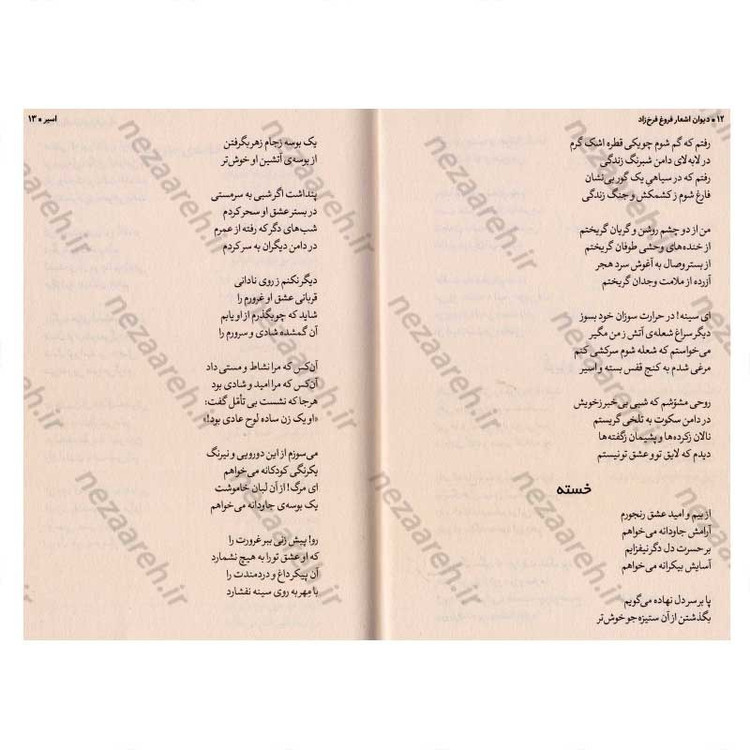 ۱۲ • دیوان اشعار فروغ فرخ‌زاد
رفتم که گم شوم چو یکی قطره اشک گرم
در لابه‌لای دامن شبرنگ زندگی
رفتم که در سیاهی یک گور بی‌نشان
فارغ شوم ز کشمکش و جنگ زندگی
من از دو چشم روشن و گریان گریختم
از خنده‌های وحشی طوفان گریختم
از بستر وصال به آغوش سرد هجر
آزرده از ملامت وجدان گریختم
ای سینه! در حرارت سوزان خود بسوز
دیگر سراغ شعله‌ی آتش ز من مگیر
می‌خواستم که شعله شوم سرکشی کنم
مرغی شدم به کنج قفس بسته و اسیر
روحی مشوّشم که شبی بی‌خبر ز خویش
در دامن سکوت به تلخی گریستم
نالان ز کرده‌ها و پشیمان ز گفته‌ها
دیدم که لایق تو و عشق تو نیستم
خسته
از بیم و امید عشق رنجورم
آرامش جاودانه می‌خواهم
بر حسرت دل دگر نیفزایم
آسایش بیکرانه می‌خواهم
پا بر سر دل نهاده می‌گویم
بگذشتن از آن ستیزه‌جو خوش‌تر
اسیر • ۱۳
یک بوسه ز جام زهر بگرفتن
از بوسه‌ی آتشین او خوش‌تر
پنداشت اگر شبی به سرمستی
در بستر عشق او سحر کردم
شب‌های دگر که رفته از عمرم
در دامن دیگران به سر کردم
دیگر نکنم ز روی نادانی
قربانی عشق او غرورم را
شاید که چو بگذرم از او یابم
آن گمشده شادی و سرورم را
آن‌کس که مرا نشاط و مستی داد
آن‌کس که مرا امید و شادی بود
هرجا که نشست بی تأمّل گفت:
«او یک زن ساده لوح عادی بود!»
می‌سوزم از این دورویی و نیرنگ
یکرنگی کودکانه می‌خواهم
ای مرگ! از آن لبان خاموشت
یک بوسه‌ی جاودانه می‌خواهم
رو! پیش زنی ببر غرورت را
که او عشق تو را به هیچ نشمارد
آن پیکر داغ و دردمندت را
با مِهر به روی سینه نفشارد
nezaareh.ir
nezaareh.ir
nezaareh.ir
nezaareh.ir
nezaareh.ir
nezaareh.ir
nezaareh.ir
nezaareh.ir
nezaareh.ir